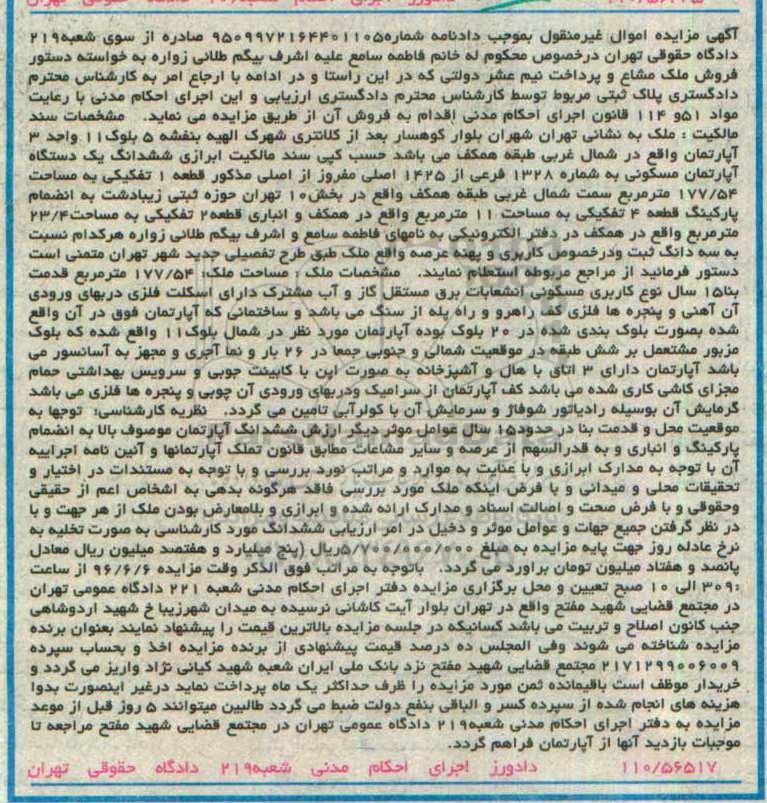 آگهی مزایده اموال غیرمنقول بموجب دادنامه شماره۹۵۰۹۹۷۲۱۶۴۴۰۱۱۰۵ صادره از سوی شعبه۲۱۹
دادگاه حقوقی تهران درخصوص محکوم له خانم فاطمه سامع علیه اشرف بیگم طلائی زواره به خواسته دستور
فروش ملک مشاع و پرداخت نیم عشر دولتی که در این راستا و در ادامه با ارجاع امر به کارشناس محترم
دادگستری پلاک ثبتی مربوط توسط کارشناس محترم دادگستری ارزیابی و این اجرای احکام مدنی با رعایت
مواد ۵۱و ۱۱۴ قانون اجرای احکام مدنی اقدام به فروش آن از طریق مزایده می نماید. مشخصات سند
مالکیت : ملک به نشانی تهران شهران بلوار کوهسار بعد از کلانتری شهرک الهیه بنفشه ۵ بلوک۱۱ واحد ۳
آپارتمان واقع در شمال غربی طبقه همکف می باشد حسب کپی سند مالکیت ابرازی ششدانگ یک دستگاه
آپارتمان مسکونی به شماره ۱۳۲۸ فرعی از ۱۴۲۵ اصلی مفروز از اصلی مذکور قطعه ۱ تفکیکی به مساحت
۱۷۷/۵۴ مترمربع سمت شمال غربی طبقه همکف واقع در بخش۱۰ تهران حوزه ثبتی زیبادشت به انضمام
پارکینگ قطعه ۴ تفکیکی به مساحت ۱۱ مترمربع واقع در همکف و انباری قطعه۲ تفکیکی به مساحت۲۳/۴
مترمربع واقع در همکف در دفتر الکترونیکی به نامهای فاطمه سامع و اشرف بیگم طلائی زواره هرکدام نسبت
به سه دانگ ثبت ودرخصوص کاربری و پهنه عرصه واقع ملک طبق طرح تفصیلی جدید شهر تهران متمنی است
دستور فرمائید از مراجع مربوطه استعلام نمایند. مشخصات ملک : مساحت ملک: ۱۷۷/۵۴ مترمربع قدمت
بنا۱۵ سال نوع کاربری مسکونی انشعابات برق مستقل گاز و آب مشترک دارای اسکلت فلزی دربهای ورودی
آن آهنی و پنجره ها فلزی کف راهرو و راه پله از سنگ می باشد و ساختمانی که آپارتمان فوق در آن واقع
شده بصورت بلوک بندی شده در ۲۰ بلوک بوده آپارتمان مورد نظر در شمال بلوک۱۱ واقع شده که بلوک
مزبور مشتعمل بر شش طبقه در موقعیت شمالی و جنوبی جمعا در ۲۶ بار و نما آجری و مجهز به آسانسور می
باشد آپارتمان دارای ۳ اتاق با هال و آشپزخانه به صورت اپن با کابینت چوبی و سرویس بهداشتی حمام
مجزای کاشی کاری شده می باشد کف آپارتمان از سرامیک ودربهای ورودی آن چوبی و پنجره ها فلزی می باشد
گرمایش آن بوسیله رادیاتور شوفاژ و سرمایش آن با کولرآبی تامین می گردد. نظریه کارشناسی: توجها به
موقعیت محل و قدمت بنا در حدود۱۵ سال عوامل موثر دیگر ارزش ششدانگ آپارتمان موصوف بالا به انضمام
پارکینگ و انباری و به قدرالسهم از عرصه و سایر مشاعات مطابق قانون تملک آپارتمانها و آئین نامه اجراییه
آن با توجه به مدارک ابرازی و با عنایت به موارد و مراتب نورد بررسی و با توجه به مستندات در اختیار و
تحقیقات محلی و میدانی و با فرض اینکه ملک مورد بررسی فاقد هرگونه بدهی به اشخاص اعم از حقیقی
وحقوقی و با فرض صحت و اصالت اسناد و مدارک ارائه شده و ابرازی و بلامعارض بودن ملک از هر جهت و با
در نظر گرفتن جمیع جهات و عوامل موثر و دخیل در امر ارزیابی ششدانگ مورد کارشناسی به صورت تخلیه به
نرخ عادله روز جهت پایه مزایده به مبلغ ۵/۷۰۰/۰۰۰/۰۰۰ریال (پنج میلیارد و هفتصد میلیون ریال معادل
پانصد و هفتاد میلیون تومان براورد می گردد. باتوجه به مراتب فوق الذکر وقت مزایده ۹۶/۶/۶ از ساعت
۹:۳۰ الی ۱۰ صبح تعیین و محل برگزاری مزایده دفتر اجرای احکام مدنی شعبه ۲۲۱ دادگاه عمومی تهران
در مجتمع قضایی شهید مفتح واقع در تهران بلوار آیت کاشانی نرسیده به میدان شهرزیبا خ شهید اردوشاهی
جنب کانون اصلاح و تربیت می باشد کسانیکه در جلسه مزایده بالاترین قیمت را پیشنهاد نمایند بعنوان برنده
مزایده شناخته می شوند وفی المجلس ده درصد قیمت پیشنهادی از برنده مزایده اخذ و بحساب سپرده
۲۱۷۱۲۹۹۰۰۶۰۰۹ مجتمع قضایی شهید مفتح نزد بانک ملی ایران شعبه شهید کیانی نژاد واریز می گردد و
خریدار موظف است باقیمانده ثمن مورد مزایده را ظرف حداکثر یک ماه پرداخت نماید درغیر اینصورت بدوا
هزینه های انجام شده از سپرده کسر و الباقی بنفع دولت ضبط می گردد طالبین میتوانند ۵ روز قبل از موعد
مزایده به دفتر اجرای احکام مدنی شعبه۲۱۹ دادگاه عمومی تهران در مجتمع قضایی شهید مفتح مراجعه تا
موجبات بازدید آنها از آپارتمان فراهم گردد.
۱۱۰/۵۶۵۱۷ دادورز اجرای احکام مدنی شعبه۲۱۹ دادگاه حقوقی تهران